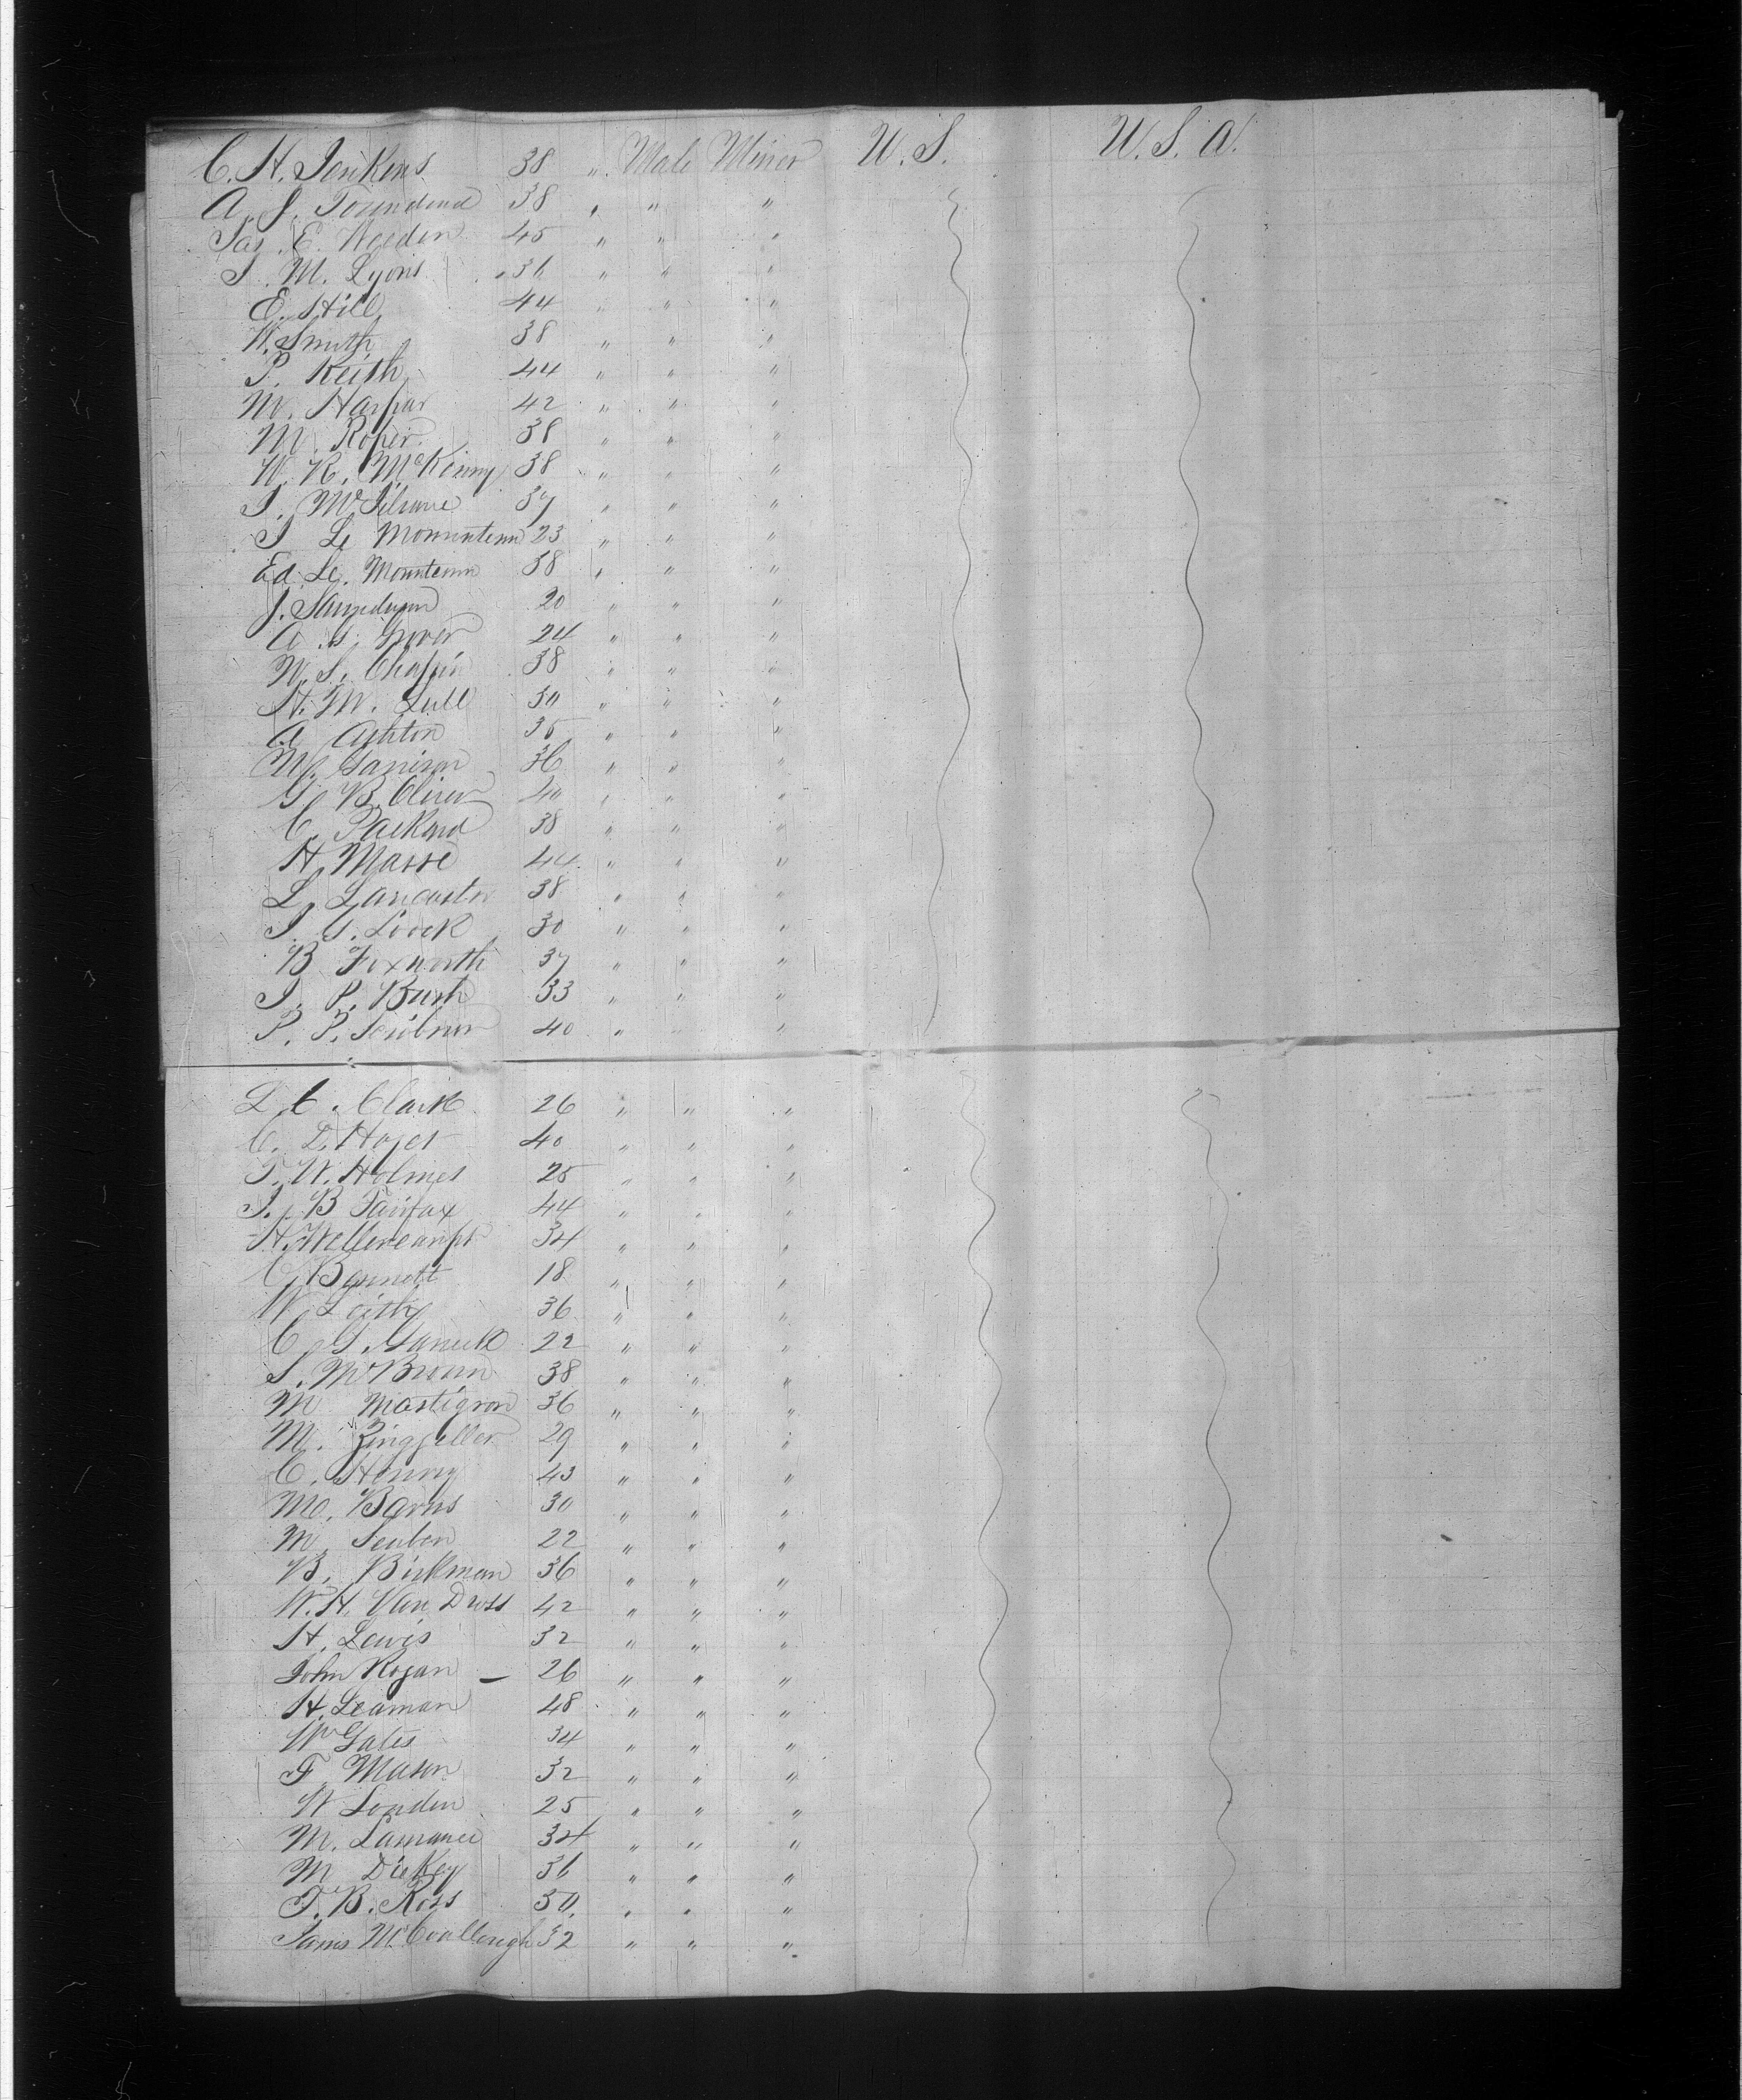 C. H. Jenkins 38 " Male Miner U. S. U. S. A.
A. J. Townsend 38 " " "
Jas. E. Weeden 45 " " "
J. M. Lyons 36 " " "
E. Hill 44 " " "
W. Smith 38 " " "
P. Keith 44 " " "
M. Harper 42 " " "
M. Roper 38 " " "
W. R. McKinny 38 " " "
J. 37 " " "
J Le 23 " " "
Ed. Le. Mountenn 38 " " "
J. 20 " " "
A. 24 " " "
W. S. Chapin 38 " " "
H. M. Lull 30 " " "
A Ashton 35 " " "
M. Garrison 36 " " "
G. B. Oliver 40 " " "
C. Packard 38 " " "
H. Masse 44 " " "
L. Lancaster 38 " " "
J. G. Loock 30 " " "
B Foxworth 37 " " "
J. P. Bush 33 " " "
P. P. Scribner 40 " " "
L. C. Clark 26 " " "
C. L. 40 " " "
T. W. Holmes 25 " " "
J. B Fairfax 44 " " "
H. Wellencampt 34 " " "
C. Barnett 18 " " "
W. Leith 36 " " "
C. G. 22 " " "
S. McBroom 38 " " "
M Mastigron 36 " " "
M. Zingfeller 29 " " "
C. Henny 43 " " "
Mc. Barns 30 " " "
M. 22 " " "
B. Birkman 36 " " "
W. H. Van Dross 42 " " "
H. Lewis 32 " " "
John Rogan — 26 " " "
H. Leaman 48 " " "
W Gates 34 " " "
F. Mason 32 " " "
W London 25 " " "
M. Lamance 34 " " "
M Dickey 36 " " "
T. B. Ross 30. " " "
James McCoullough 32 " " "